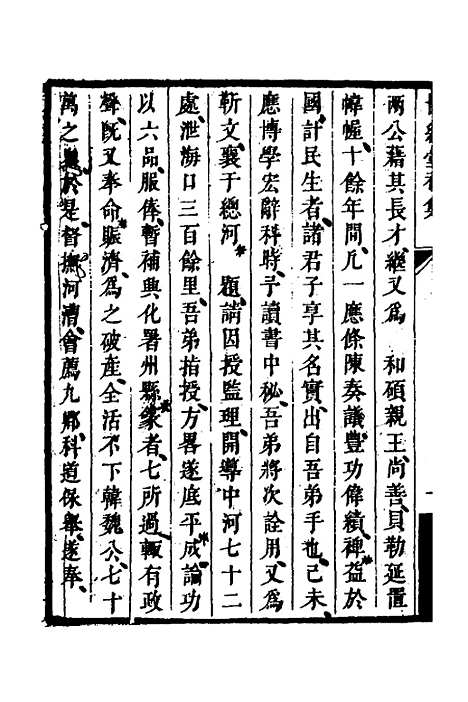 兩公藉其長才繼又爲 和碩親王尚善貝勒延置
幃幄十餘年間凡一應條陳奏議豐功偉績裨益於
國計民生者諸君子享其名實出自吾弟手也己未
應博學宏辭科時予讀書中秘吾弟將次詮用又爲
靳文襄于總河 題請因授監理開導中河七十二
處泄海口三百餘里吾弟指授方畧遂底平成論功
以六品服俸暫補興化署州縣篆者七所過輒有政
聲旣又奉命賑濟爲之破產全活不下韓魏公七十
萬之衆於是督撫河漕會薦九鄉科道保舉遂奉